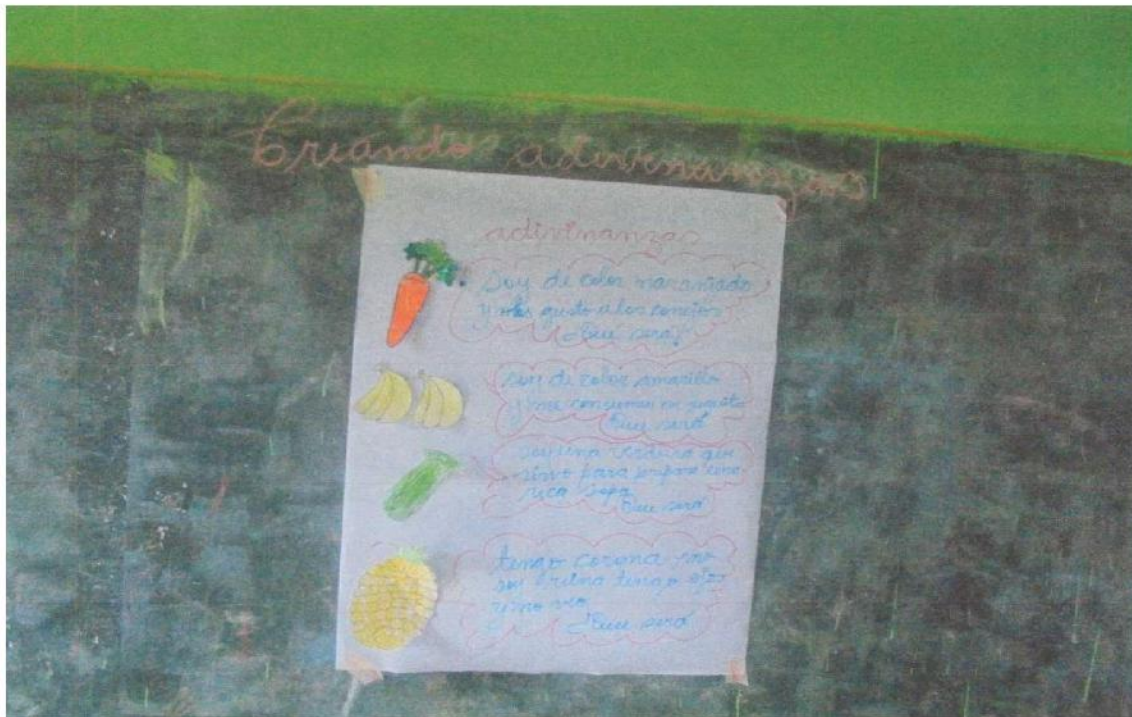 Criando adivinanzas
adivinanzas
soy de color naranjado
gusto a los conejos
¿Que sera?
soy de color amarillo
y me consumen en
Que será
soy una verdura que
sirvo para preparar una
rica sopa
Que será
tengo corona no
soy reina tengo ojos
y no veo
¿Que será